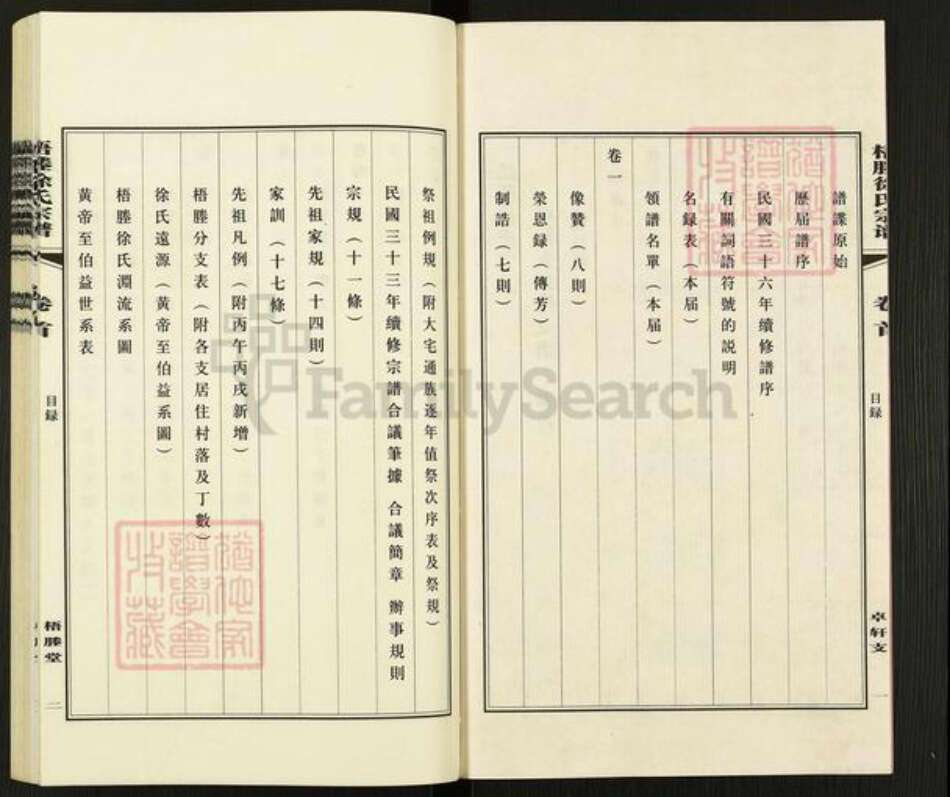 梧塍徐氏宗譜
卷首
目録
卓轩支
一
譜諜原始
歷届譜序
民國三十六年續修譜序
有關詞語符號的説明
名録表（本届）
領譜名單（本届）
卷一
像贊（八則）
榮恩録（傳芳）
制誥（七則）
祭祖例規（附大宅通族逐年值祭次序表及祭規）
民國三十三年續修宗譜合議筆據 合議簡章 辦事規則
宗規（十一條）
先祖家規（十四則）
家訓（十七條）
先祖凡例（附丙午丙戌新增）
梧塍分支表（附各支居住村落及丁數）
徐氏遠源（黃帝至伯益系圖）
梧塍徐氏淵流系圖
黃帝至伯益世系表
梧塍徐氏宗譜
卷首
目録
梧塍堂
二
FamilySearch